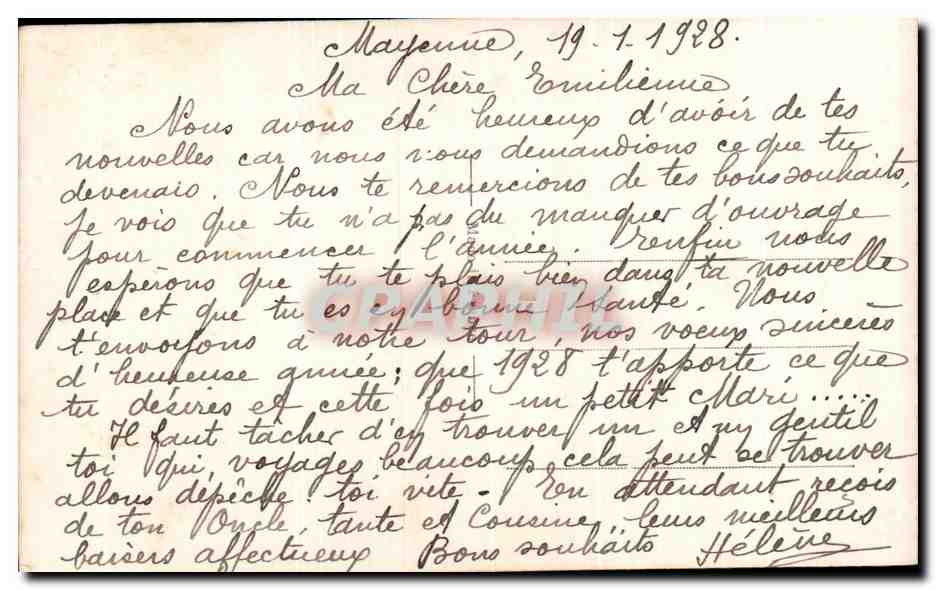 Mayenne, 19-1-1928.
Ma Chère Emilienne
Nous avons été heureux d'avoir de tes
nouvelles car nous nous demandions ce que tu
devenais. Nous te remercions de tes bons souhaits,
je vois que tu n'a pas du manquer d'ouvrage
pour commencer l'année. Enfin nous
espérons que tu te plais bien dans ta nouvelle
place et que tu es en bonne santé. Nous
t'envoyons à notre tour, nos voeux sincères
d'heureuse année; que 1928 t'apporte ce que
tu désires et cette fois un petit Mari......
Il faut tâcher d'en trouver un et un gentil
toi qui voyages beaucoup cela peut se trouver
allons dépêche toi vite - En attendant reçois
de ton Oncle, tante et Cousine, leurs meilleurs
baisers affectueux Bons souhaits Hélène